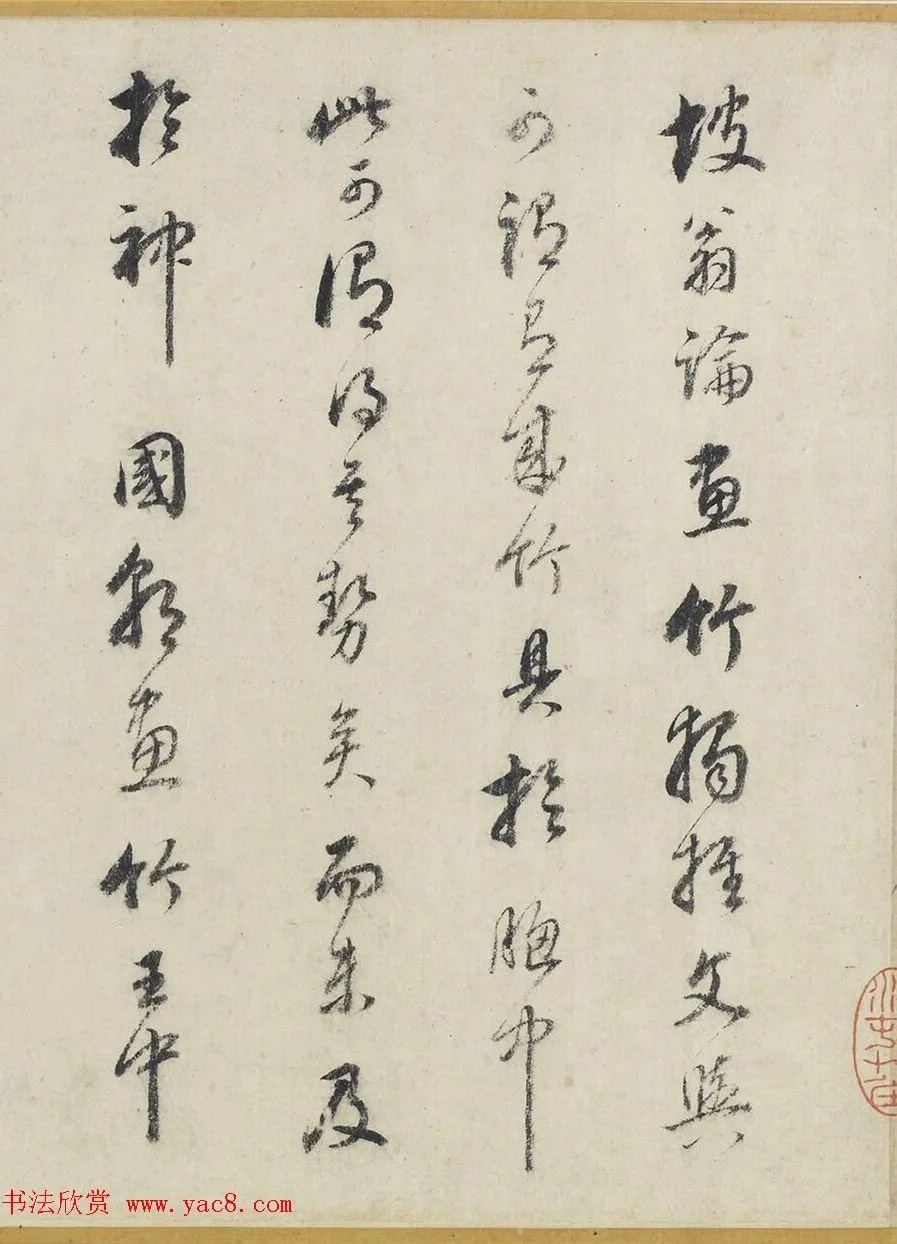 坡翁論畫竹獨推文與
可謂有成竹具於胸中
此可謂得其勢矣而未及
於神 國朝畫竹王中
书法欣赏 www.yac8.com